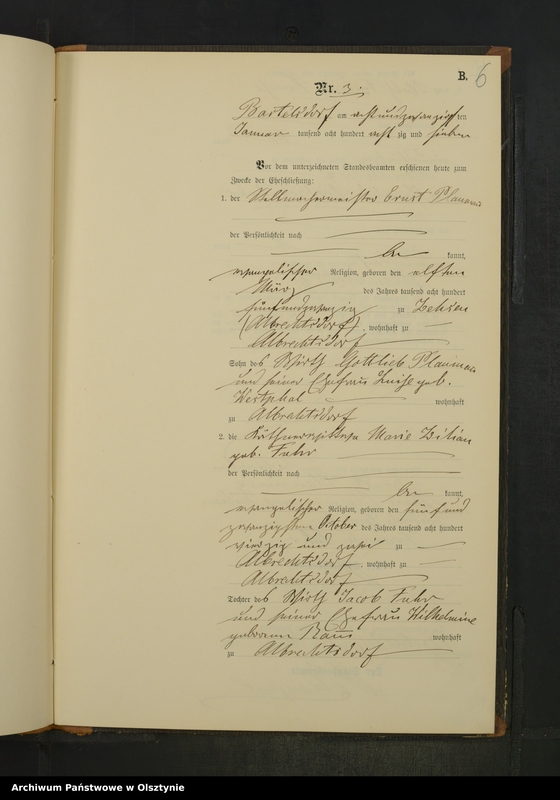 B. 6
Nr. 3.
Bartelsdorf am acht und zwanzigsten
Januar tausend acht hundert acht zig und sieben
Vor dem unterzeichneten Standesbeamten erschienen heute zum
Zwecke der Eheschließung:
1. der Stellmachermeister Ernst Plaumann
der Persönlichkeit nach
be kannt,
evangelischer Religion, geboren den elften
März des Jahres tausend acht hundert
fünfundzwanzig zu Zehsen
(Albrechtsdorf), wohnhaft zu
Albrechtsdorf
Sohn des Wirth Gottlieb Plauman
und seiner Ehefrau Luise geb.
Westphal wohnhaft
zu Albrechtsdorf
2. die Käthnerwittwe Marie Zilian
geb. Fuhr
der Persönlichkeit nach
be kannt,
evangelischer Religion, geboren den fünf und
zwanzigsten October des Jahres tausend acht hundert
vierzig und zwei zu
Albrechtsdorf, wohnhaft zu
Albrechtsdorf
Tochter des Wirth Jacob Fuhr
und seiner Ehefrau Wilhelmine
geborene wohnhaft
zu Albrechtsdorf
Archiwum Państwowe w Olsztynie